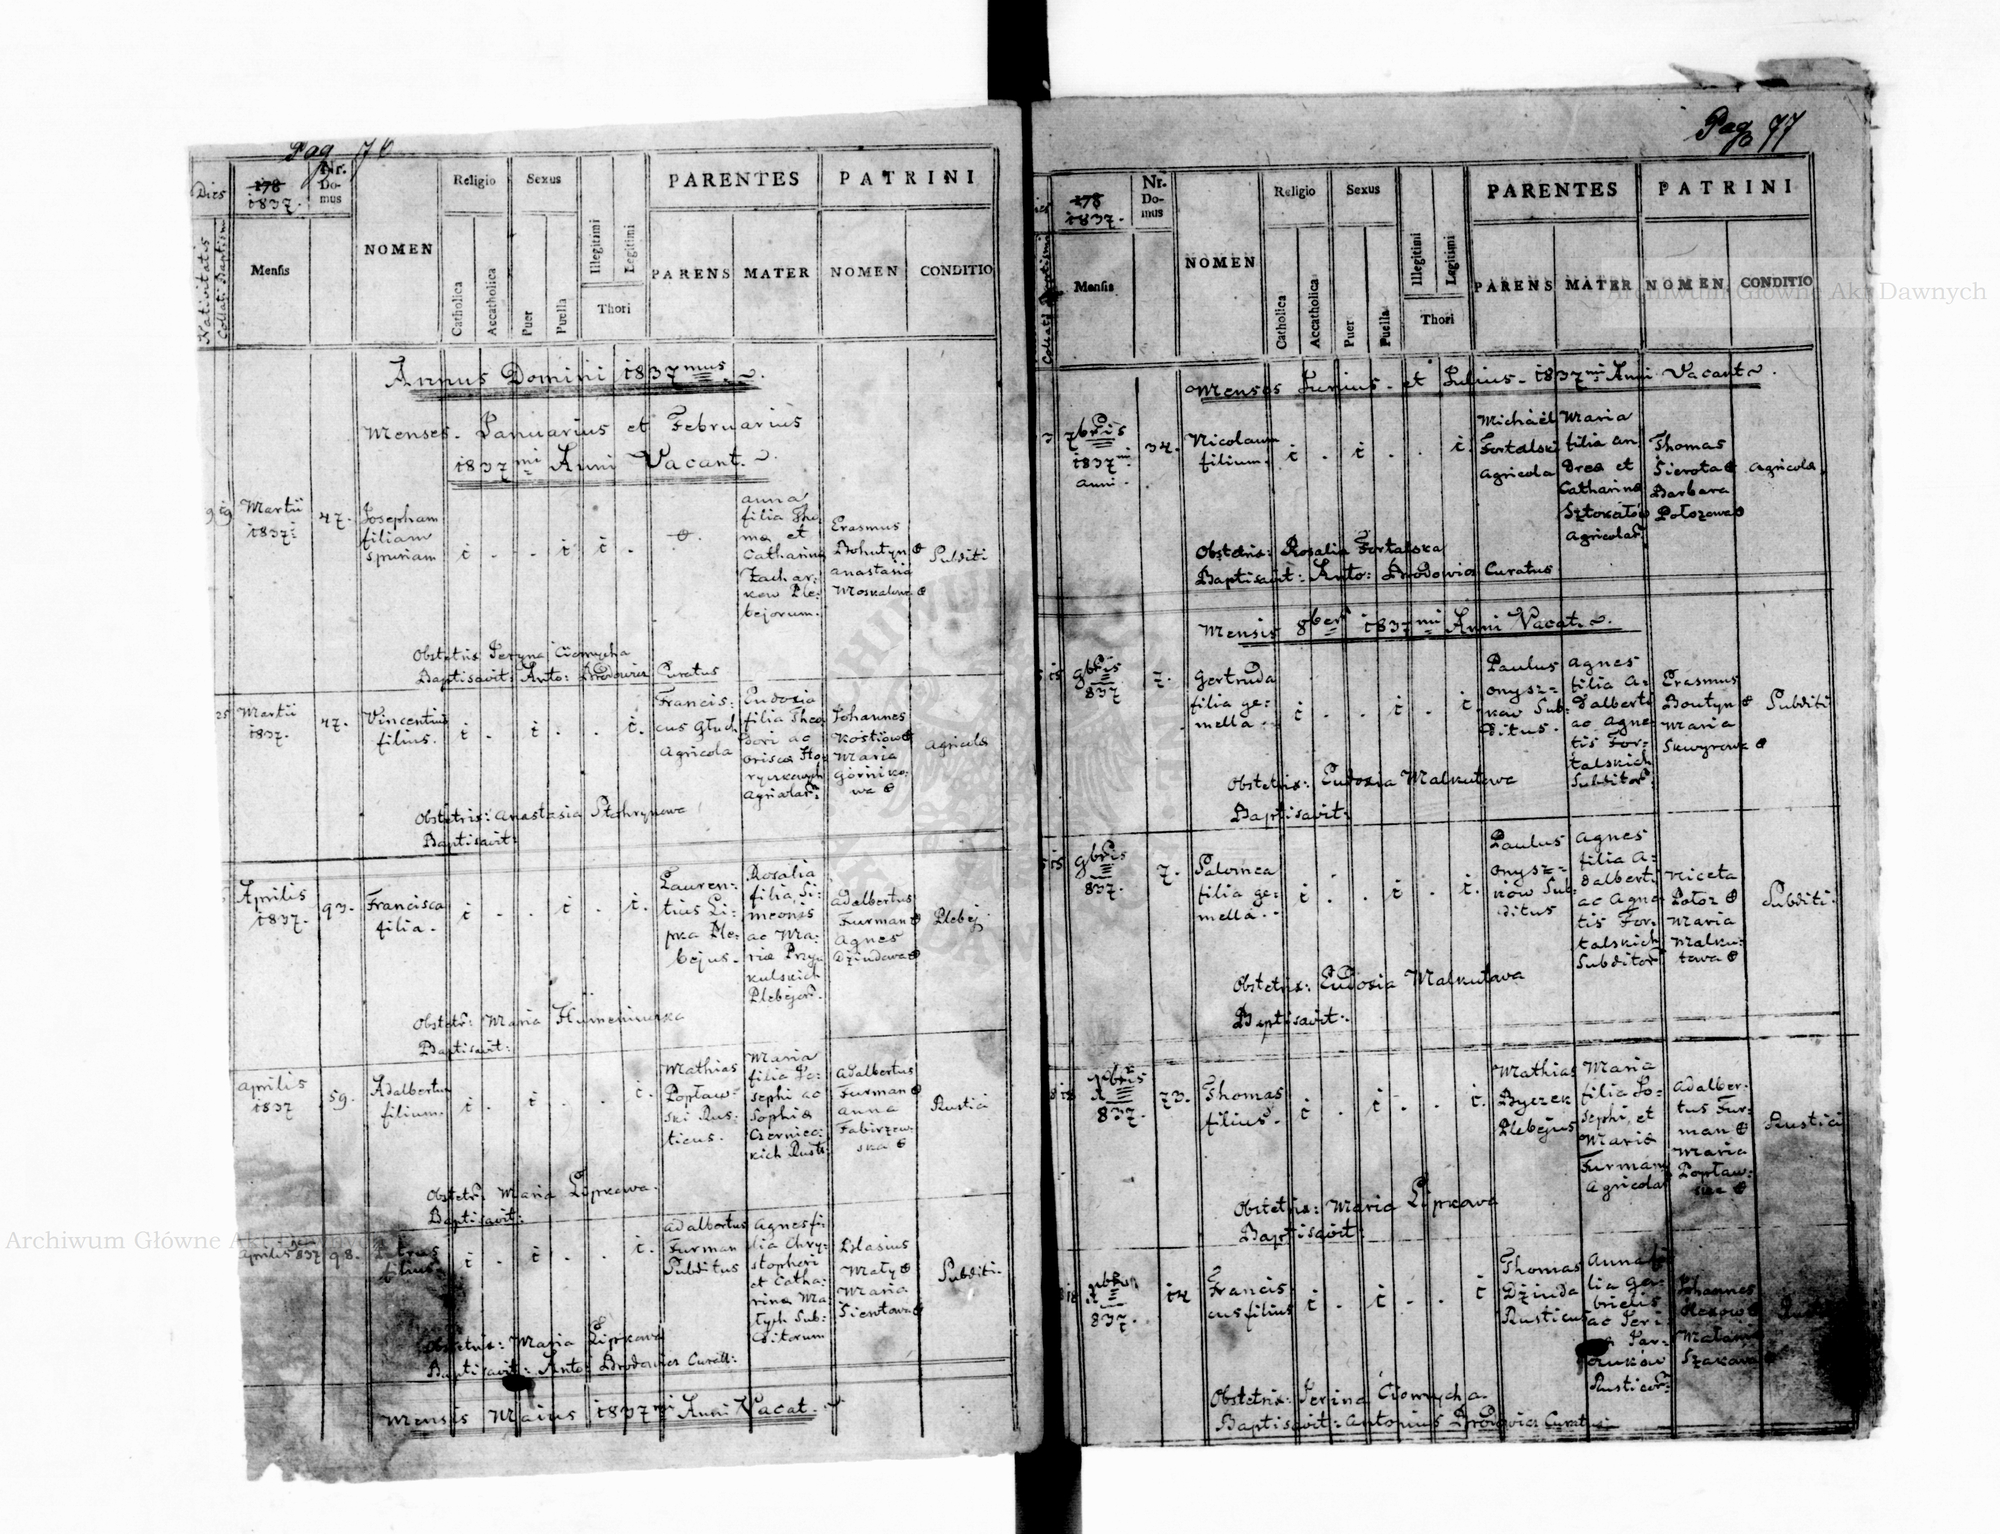 Pag 76
Dies
Nativitatis
Collati Baptismi
178
1837.
Nr. Do-mus
Mensis
NOMEN
Religio
Catholica
Accatholica
Sexus
Puer
Puella
Illegitimi
Legitimi
Thori
PARENTES
PARENS
MATER
PATRINI
NOMEN
CONDITIO
Annus Domini 1837mus
Menses Januarius et Februarius
1837mi Anni Vacant.
9 19
Martii
1837i
47.
Josepham
filiam
spuriam
anna
filia Tho
mæ et
Catharinæ
Zachar:
kow Ple:
bejorum.
Erasmus
Bohutyn
anastasia
Moskalowa
Subditi
Obstetrix Ieryna Ciomycha
Baptisavit: Anto: Brodowicz Curatus
25
Martii
1837.
47.
Vincentius
filius.
Francis:
cus Głuch
Agricola
Eudoxia
filia Theo
dori ac
Agricolar:
Johannes
Kostiow
Maria
Górniko:
wa
Agricolæ
Obstetrix: Anastasia Stachrynowa
Baptisavit:
Aprilis
1837.
93.
Francisca
filia.
Lauren:
tius Li:
pka Ple:
bejus.
Rosalia
filia Si:
meonis
ac Ma:
riæ Przy
kulskich
Plebejor.
Adalbertus
Furman
Agnes
Dziudowa
Plebej
Obstetr: Maria Humeniucka
Baptisavit:
Aprilis
1837
59.
Adalbertum
filium.
Mathias
Popław:
ski Rus:
ticus.
Maria
filia Jo:
sephi ac
Sophiæ
Czerniec:
kich Rusti:
Adalbertus
Furman
Anna
Fabirzew:
ska
Rustici
Obstetr: Maria Lipkowa.
Baptisavit:
Aprilis 837
98.
Petrus
filius.
Adalbertus
Furman
Subditus
Agnes fi:
lia Chry:
stophori
et Catha:
rinæ Ma
łych Sub:
ditorum
Blasius
Mały
Maria
Sientowa
Subditi.
Obstetrix: Maria Lipkowa
Baptisavit: Anto: Brodowicz Curatt:
Mensis Maius 1837mi Anni Vacat.
Pag 77
178
1837.
Nr. Do-mus
Mensis
NOMEN
Religio
Catholica
Accatholica
Sexus
Puer
Puella
Illegitimi
Legitimi
Thori
PARENTES
PARENS
MATER
PATRINI
NOMEN
CONDITIO
Menses Junius et Julius 1837mi Anni Vacant
3
7bris
1837mi
Anni.
34.
Nicolaum
filium.
Michaël
Fortalski
Agricola
Maria
filia An
dreæ et
Catharinæ
Sztokałów
Agricolar.
Thomas
Sierota
Barbara
Połozowa
Agricolæ.
Obstetrix: Rosalia Fortalska
Baptisavit: Anto: Brodowicz Curatus
Mensis 8ber 1837mi Anni Vacat.
9bris
837
7.
Gertruda
filia ge:
mella.
Paulus
Onysz:
ków Sub:
ditus.
Agnes
filia A:
dalberti
ac Agne
tis For:
talskich
Subditor.
Erasmus
Boutyn
Maria
Skwyrowa
Subditi
Obstetrix: Eudoxia Malkutowa
Baptisavit:
9bris
837.
7.
Salomea
filia ge:
mella.
Paulus
Onysz:
ków Sub:
ditus
Agnes
filia A:
dalberti
ac Agne
tis For:
talskich
Subditor
Niceta
Połoz
Maria
Malku:
towa
Subditi.
Obstetrix: Eudoxia Malkutowa
Baptisavit:
Xbris
837.
73.
Thomas
filius.
Mathias
Byczek
Plebejus
Maria
filia Jo:
sephi, et
Mariæ
Furman
Agricolar
Adalber:
tus Fur:
man
Maria
Popław:
ska
Rustici
Obstetrix: Maria Lipkowa
Baptisavit:
Xbris
837.
14
Francis
cus filius
Thomas
Dziuda
Rusticus
Anna fi
lia Ga:
brielis
ac Jeri:
Rusticor:
Johannes
Szakowa
Obstetrix: Jerina Ciomycha.
Baptisavit: Antonius Brodowicz Curatus
Archiwum Główne Akt Dawnych
Archiwum Główne Akt Dawnych